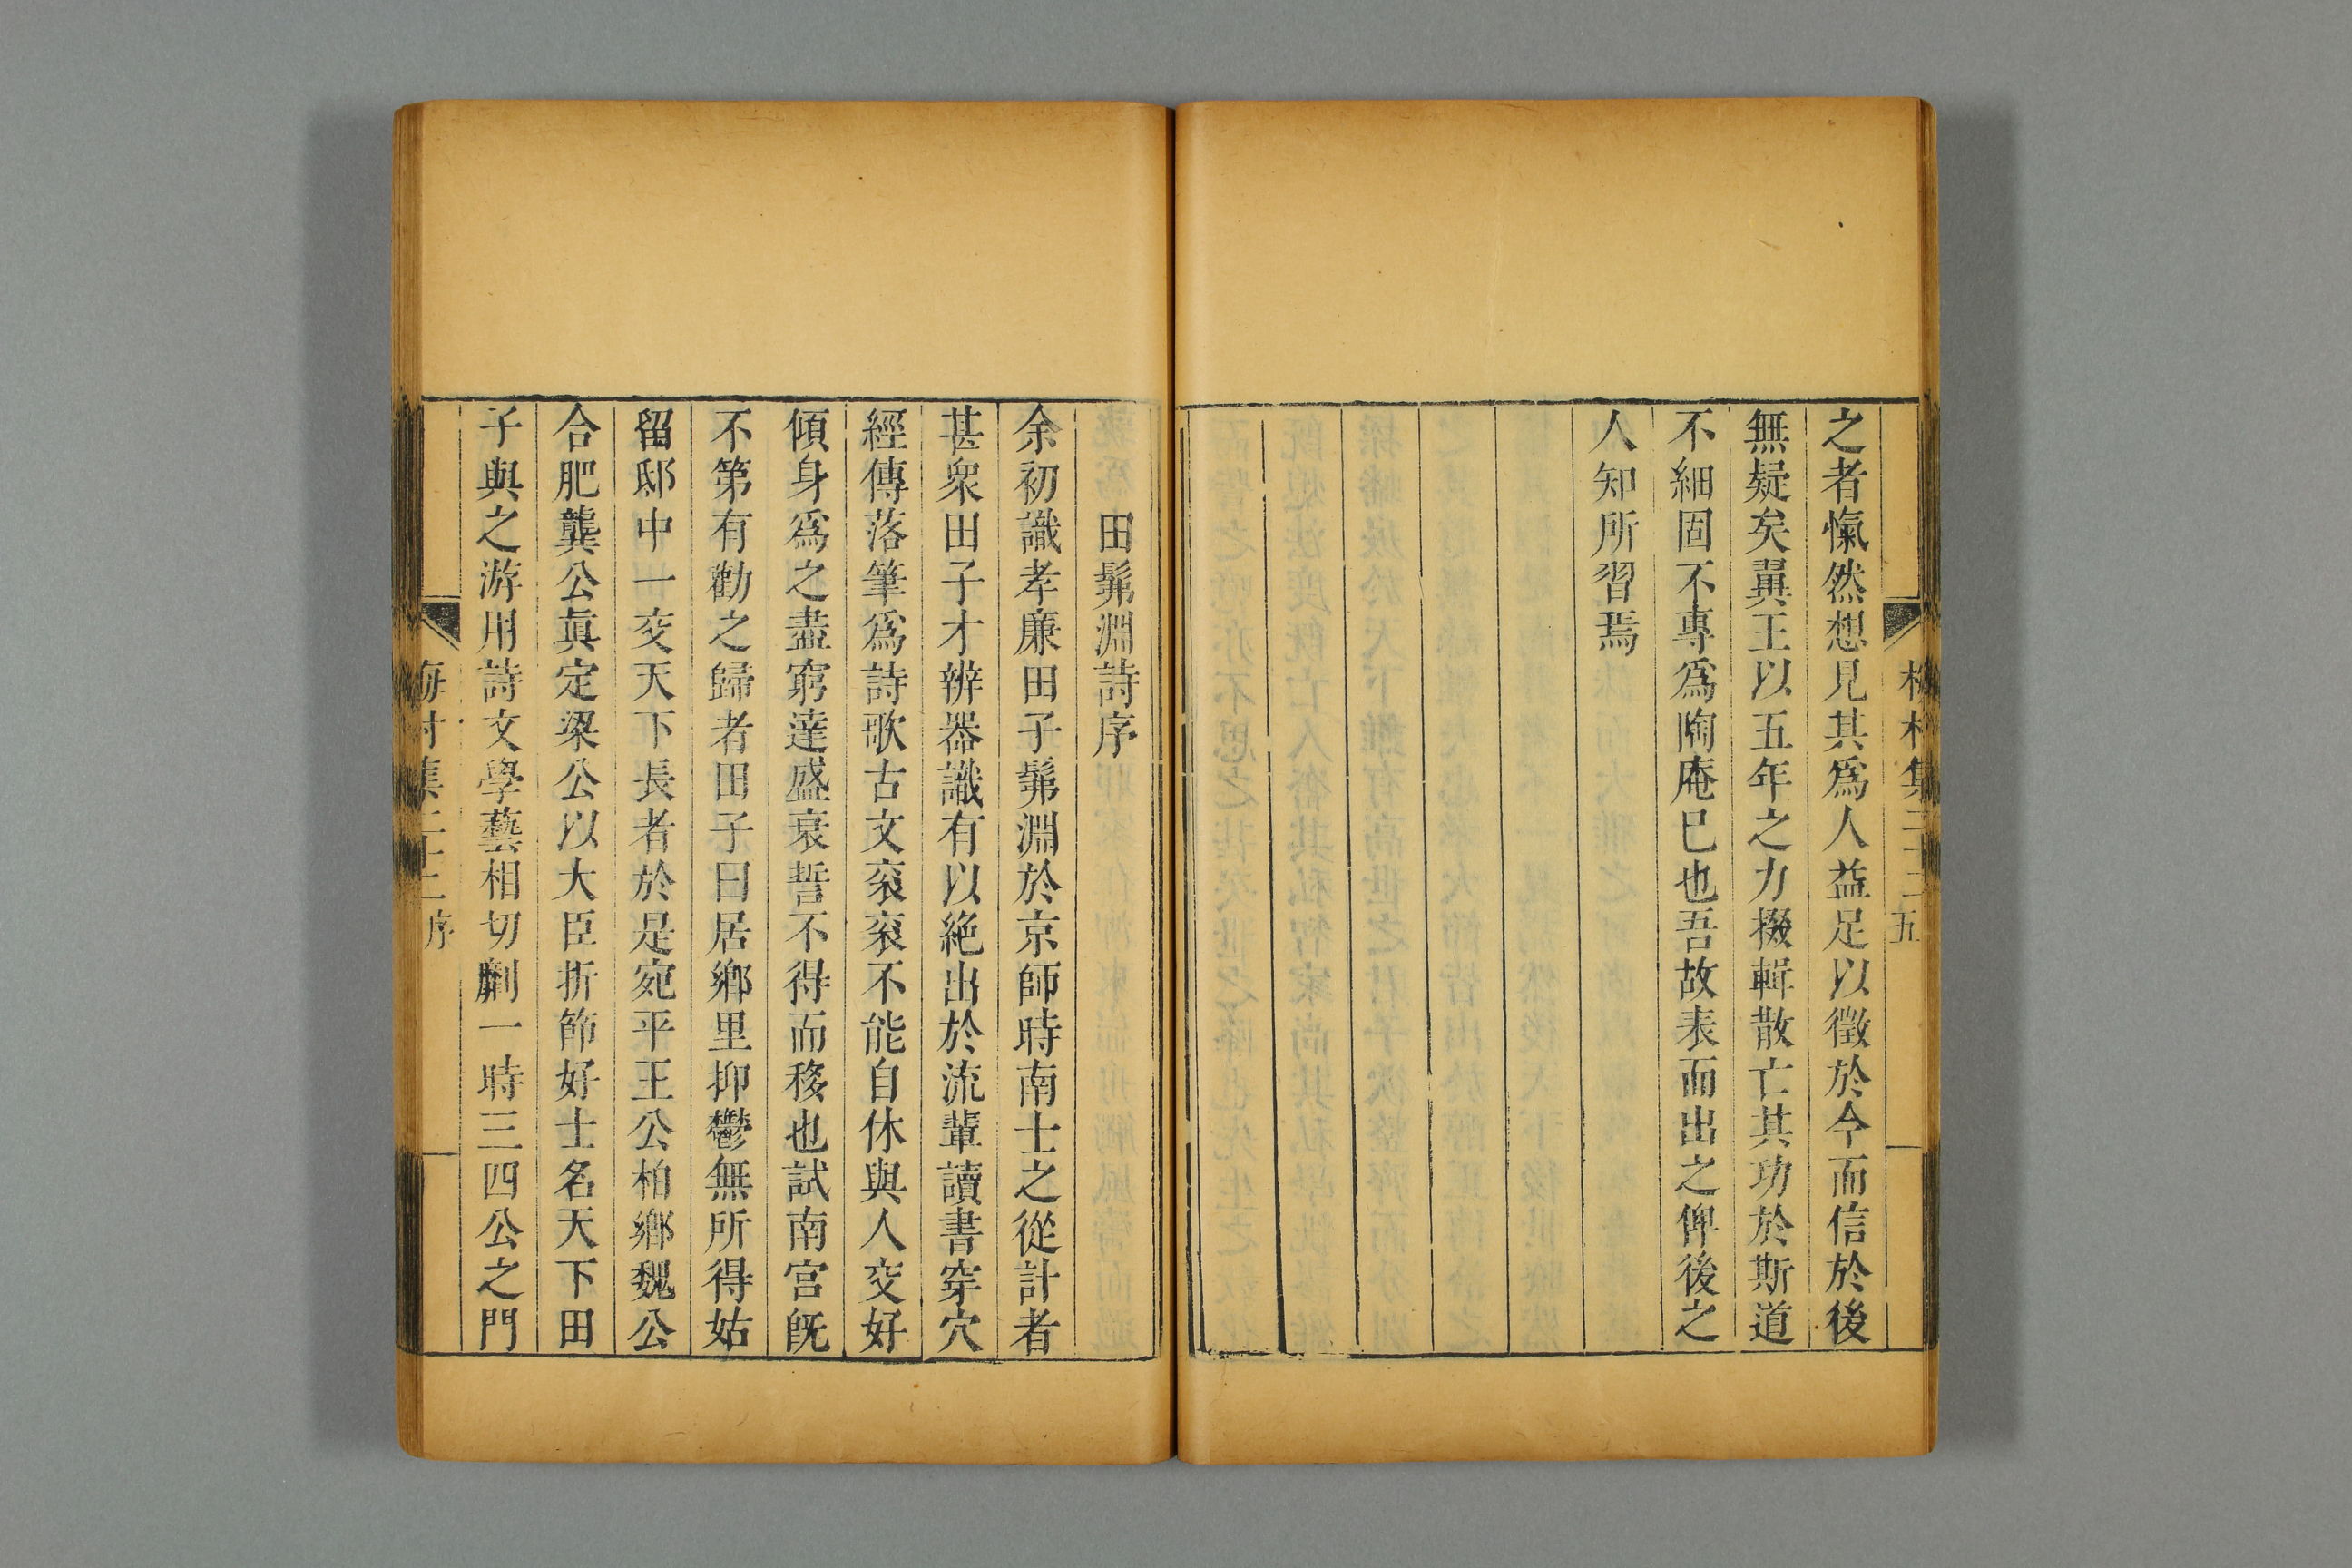 之者愾然想見其爲人益足以徵於今而信於後
無疑矣翼王以五年之力掇輯散亡其功於斯道
不細固不專爲陶庵已也吾故表而出之俾後之
人知所習焉
五
田髴淵詩序
余初識孝廉田子髴淵於京師時南士之從計者
甚衆田子才辨器識有以絶出於流輩讀書穿穴
經傳落筆爲詩歌古文衮衮不能自休與人交好
傾身爲之盡窮達盛衰誓不得而移也試南宫旣
不第有勸之歸者田子曰居鄉里抑鬱無所得姑
留邸中一交天下長者於是宛平王公柏鄉魏公
合肥龔公眞定梁公以大臣折節好士名天下田
子與之游用詩文學藝相切劘一時三四公之門
序